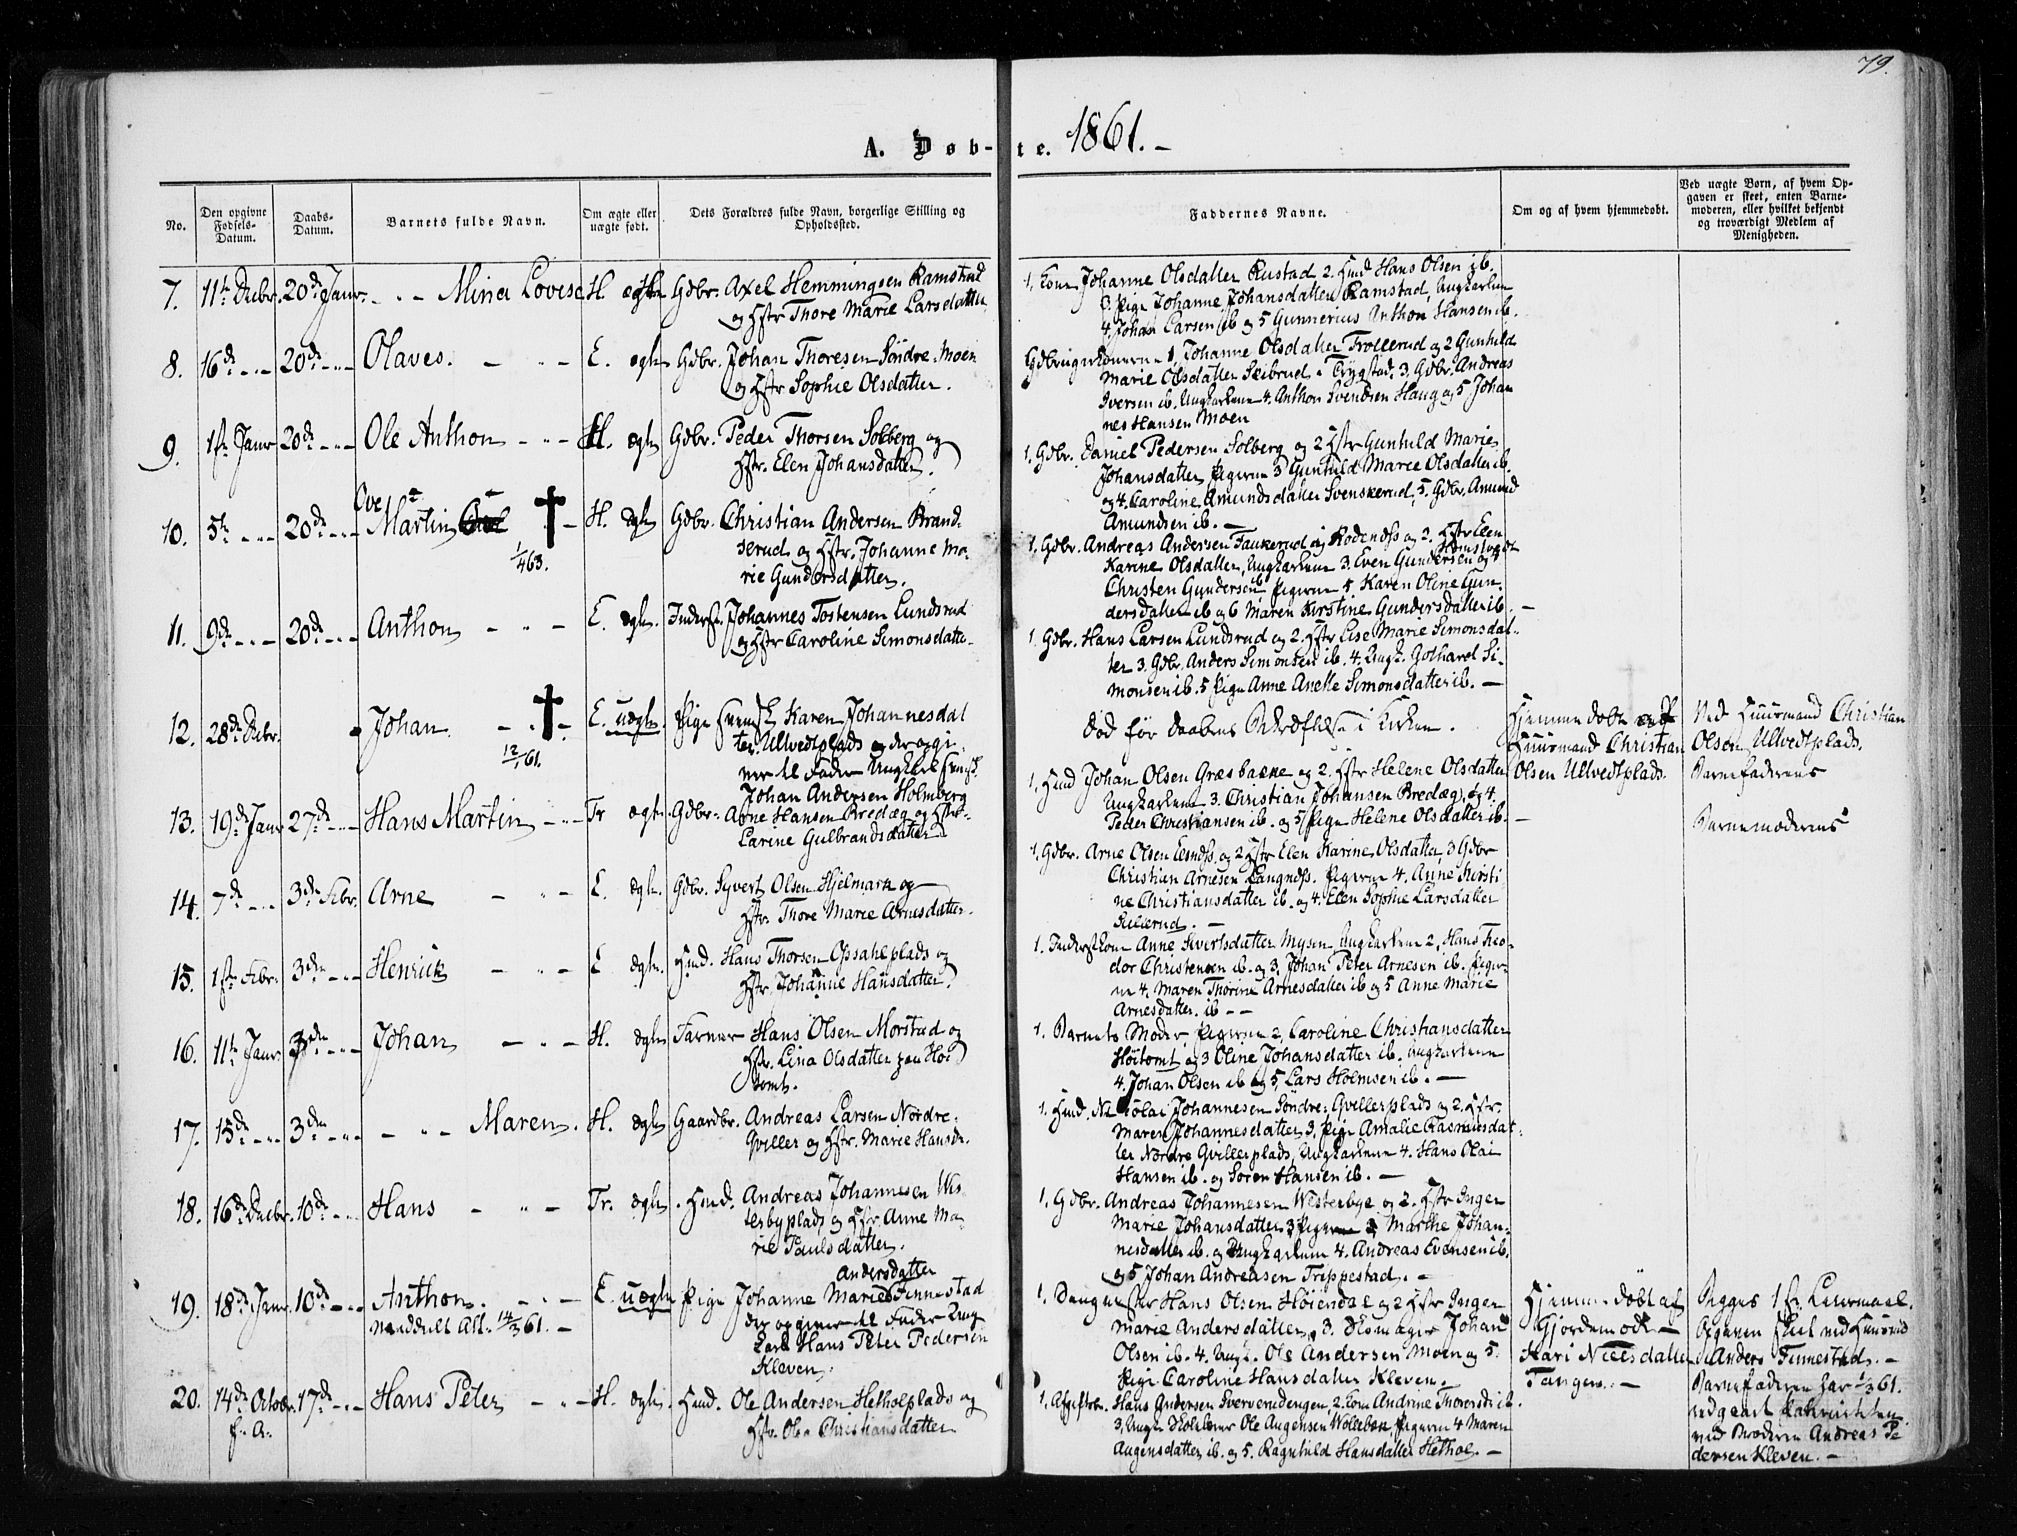 79.
A. Døb-te. 1861.-
No.
Den opgivne Fødsels-Datum.
Daabs-Datum.
Barnets fulde Navn.
Om ægte eller uægte født.
Dets Forældres fulde Navn, borgerlige Stilling og Opholdssted.
Faddernes Navne.
Om og af hvem hjemmedøbt.
Ved uægte Børn, af hvem Opgaven er skeet, enten Barnemoderen, eller hvilket bekjendt og troværdigt Medlem af Menigheden.
7. 11te Decbr. 20de Janr. - " - Mina Lovise H. ægte Gdbr. Axel Hemmingsen Ramstad
og Hstr Thore Marie Larsdatter
1. Kone Johanne Olsdatter Rustad 2. Hmd Hans Olsen ib.
3. Pige Johanne Johansdatter Ramstad, Ungkarlene
4. Johan Larsen ib og 5 Gunnerius Anthon Hansen ib.
8. 16de - " - 20de - " - Olaves. - " - E. ægte Gdbr. Johan Thoresen Søndre Moen
og Hstr Sophie Olsdatter.
1. Johanne Olsdatter Trollerud og 2 Gunhild
Marie Olsdatter Skibrud i Trygstad, 3. Gdbr. Andreas
Iversen ib. Ungkarlene 4. Anthon Svendsen Haug og 5 Johan
nes Hansen Moen
9. 1ste Janr 20de - " - Ole Anthon - " - H. ægte Gdbr. Peder Thorsen Solberg og
Hstr. Elen Johansdatter.
1. Gdbr. Daniel Pedersen Solberg og 2 Hstr Gunhild Marie
Johansdatter, Pigerne 3 Gunhild Marie Olsdatter ib.
og 4. Caroline Amundsdatter Svenskerud, 5. Gdbr. Amund
Amundsen ib. -
10. 5te - " - 20de - " - Ove Martin † H. ægte Gdbr. Christian Andersen Brand-
1/4 63.
serud og Hstr. Johanne Ma-
rie Gundersdatter.
1. Gdbr. Andreas Andersen Taukerud og 2. Hstr Elen
Karine Olsdatter, Ungkarlene 3. Even Gundersen og 4
Christen Gundersen ib Pigerne 5. Karen Oline Gun-
dersdatter ib og 6 Maren Kirstine Gundersdatter ib. -
11. 9de - " - 20de - " - Anthon - " - E. ægte. Inderst. Johannes Tostensen Lundsrud
og Hstr Caroline Simonsdatter
1. Gdbr. Hans Larsen Lundsrud og 2. Hstr Lise Marie Simonsdat-
ter 3. Gdbr. Anders Simonsen ib. 4. Ungk. Gothard Si-
monsen ib. 5 Pige Anne Anette Simonsdatter ib. -
12. 28de Decbr. Johan - † - E. uægte. Pige Karen Johannesdat
12/1 61.
ter Ullvedtplads og der opgi-
ver til Fader Ungkarl
Johan Andersen Holmberg
Død før Daabens Bekræftelse i Kirken.
Hjemmedøbt af
Huusmand Christian
Olsen Ullvedtplads.
Ved Huusmand Christian
Olsen Ullvedtplads.
Barnefaderens
Barnemoderens
13. 19de Janr 27de - " - Hans Martin - " - Tr ægte. Gdbr. Arne Hansen Bredæg og Hstr
Larine Gulbrandsdatter
1. Hmd Johan Olsen Græsbakke og 2. Hstr Helene Olsdatter
Ungkarlene 3. Christian Johansen Bredæg, og 4.
Peder Christiansen ib. og 5 Pige Helene Olsdatter ib. -
14. 7de - " - 3die Febr. Arne - " - E. ægte. Gdbr. Syvert Olsen Hjelmark og
Hstr. Thore Marie Arnesdatter.
1. Gdbr. Arne Olsen og 2 Hstr Elen Karine Olsdatter, 3 Gdbr
Christian Arnesen Langnæs. Pigerne 4. Anne Kirsti-
ne Christiansdatter ib. og 4. Elen Sophie Larsdatter
15. 1ste Febr. 3die - " - Henrik - " - E ægte. Hmd. Hans Thorsen Opsahlplads og
Hstr. Johanne Hansdatter.
1. Anne Siverlsdatter Mysen, Ungkarlene 2. Hans Theo-
dor Christensen ib. og 3. Johan Peter Arnesen ib. Piger-
ne 4. Maren Thorine Arnesdatter ib og 5 Anne Marie
Arnesdatter. ib - -
16. 11te Janr 3die - " - Johan - " - H. ægte Farver Hans Olsen Morstad og
Hstr. Lina Olsdatter paa Høi
tomt.
1. Barnets Moder, Pigerne 2, Caroline Christiansdatter
Høitomt og 3 Oline Johansdatter ib. Ungkarlene
4. Johan Olsen ib og 5, Lars Holmsen ib. -
17. 15de - " - 3die - " - - " - Maren. H. ægte Gaardbr. Andreas Larsen Nordre-
Gviller og Hstr. Marie Hansdr.
1. Hmd. Nicolai Johannesen Søndre Gvillerplads og 2. Hstr.
Maren Johannesdatter, 3. Pige Amalie Rasmusdat-
ter Nordre Gvillerplads, Ungkarlene 4. Hans Olai
Hansen ib. og Søren Hansen ib. -
18. 16de Decbr. 10de - " - Hans - " - Tr. ægte. Hmd. Andreas Johannesen Wes
terbyplads og Hstr. Anne Ma-
rie Paulsdatter.
1. Gdbr. Andreas Johannesen Westerbye og 2. Hstr Inger
Marie Johansdatter, 3 Marthe Johan-
nesdatter ib. og Ungkarlene 4. Andreas Evensen ib.
og 5 Johan Andreasen Treppestad. -
19. 18de Janr. 10de - " - Anthon. - " - E. uægte Pige Johanne Marie Andersdatter Finnestad
Meddelt Att. 14/3 61. -
der opgiver til Fader Ung
karl Hans Peter Pedersen
Kleven.
1. Hans Olsen Høiendal og 2 Hstr Inger
Marie Andersdatter, 3. Johan
Olsen ib. 4. Ungk. Ole Andersen Moen og 5.
Pige Caroline Hansdatter Kleven.
Hjemmedøbt af
Gjordemoder
Kari Nielsdatter
Tangen. -
Begges 1ste Leiermaal.
Opgaven skeet ved Huusmd
Anders Finnestad. -
Barnefaderen har
vedgaaet
ved Broderen Andreas Pe
dersen Kleven. -
20. 14de Octobr. 17de - " - Hans Peter - " - H. ægte. Hmd. Ole Andersen Hetholplads og
f. A.
Hstr Christiansdatter
1. Hans Andersen Sververudengen, 2. Kone Andrine Thoresdr ib.
3. Ungk. Ole Augensen Wollebæk Pigerne 4 Maren
Augensdatter ib. og 5. Ragnhild Hansdatter Hethol. -